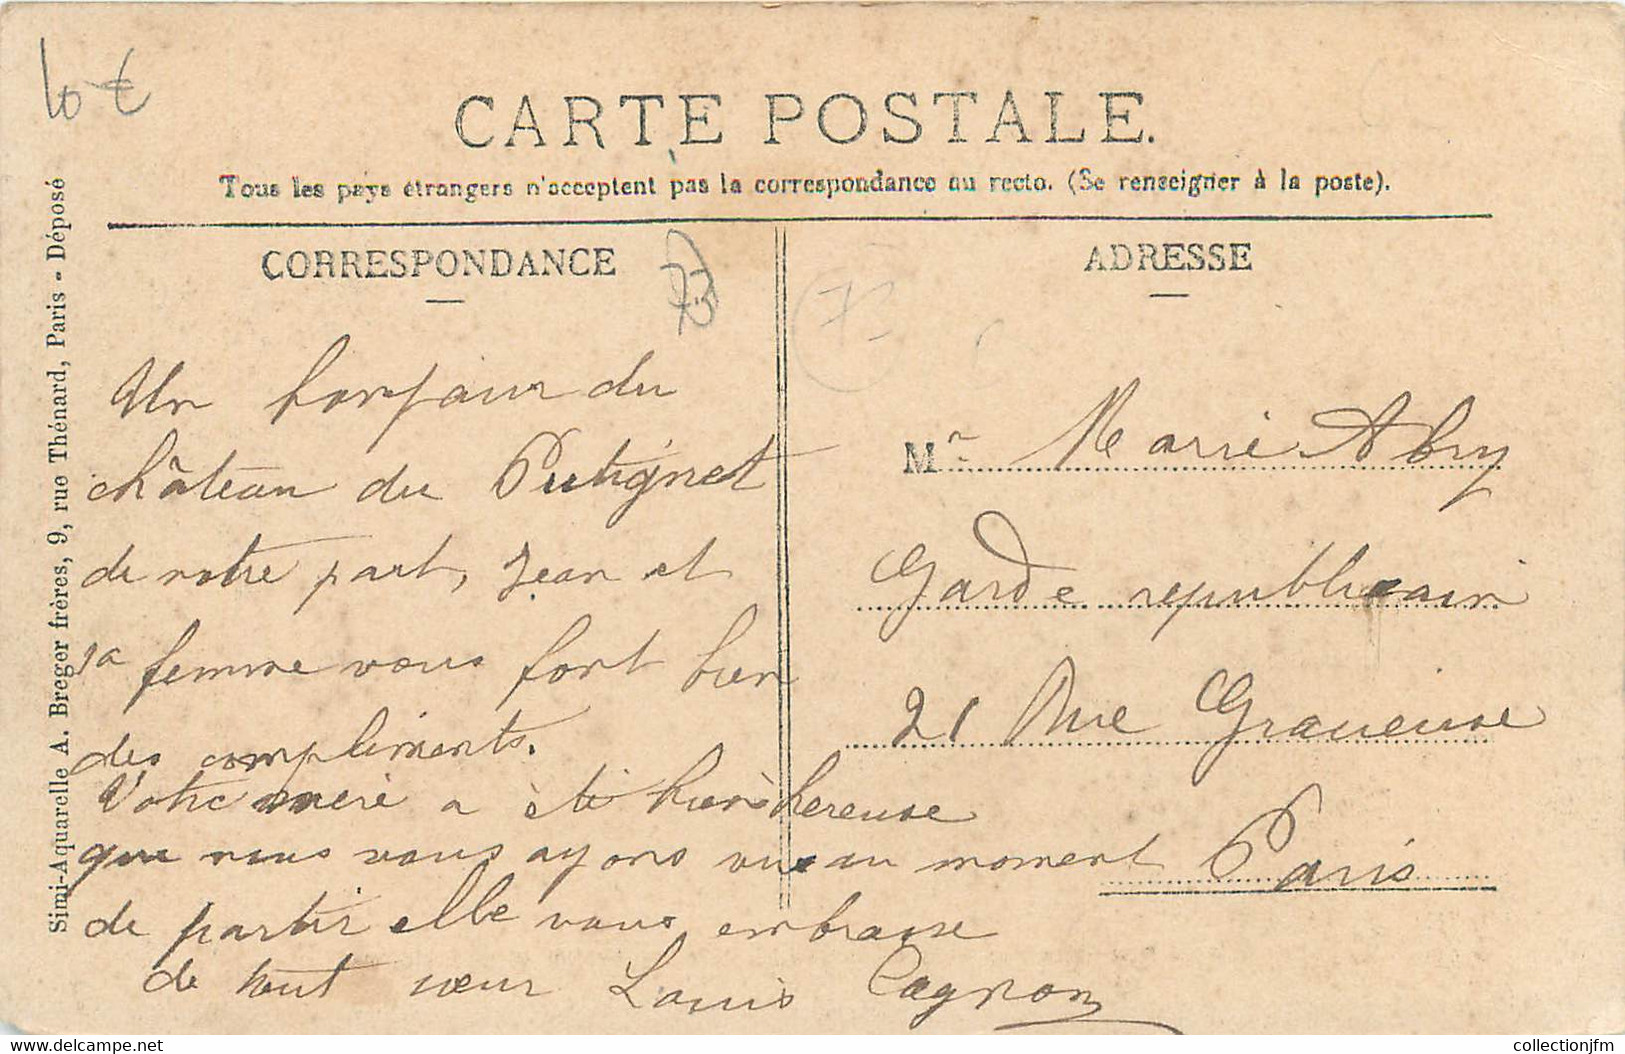 10 €
CARTE POSTALE.
Tous les pays étrangers n'acceptent pas la correspondance au recto. (Se renseigner à la poste).
Simi-Aquarelle A. Breger frères, 9, rue Thénard, Paris - Déposé
CORRESPONDANCE
73
Un bonjour du
château du Putignet
de notre part, Jean et
sa femme vous font bien
des compliments.
Votre mère a été bien hereuse
que nous vous ayons vu au moment
de partir elle vous embrasse
de tout cœur Louis Cagnon
ADRESSE
73
Mr Marie Abry
Garde republicain
21 Rue Gracieuse
Paris
collectionjfm